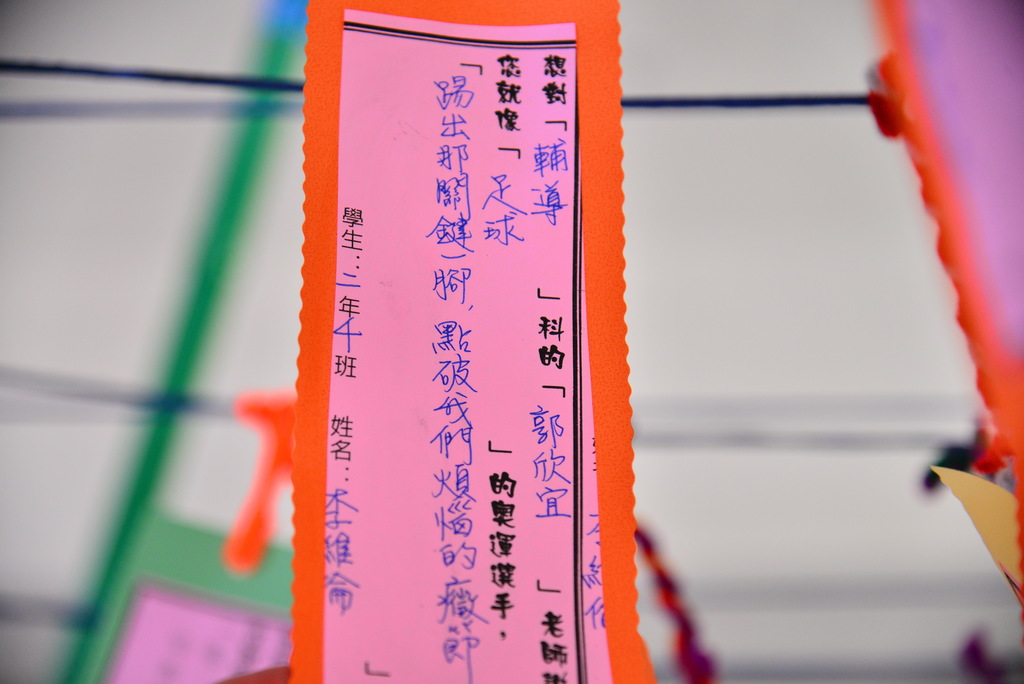 想對「輔導」科的「郭欣宜」老師說
您就像「足球」的奧運選手，
「踢出那關鍵一腳，點破我們煩惱的癥節」
學生：二年4班 姓名：李維倫